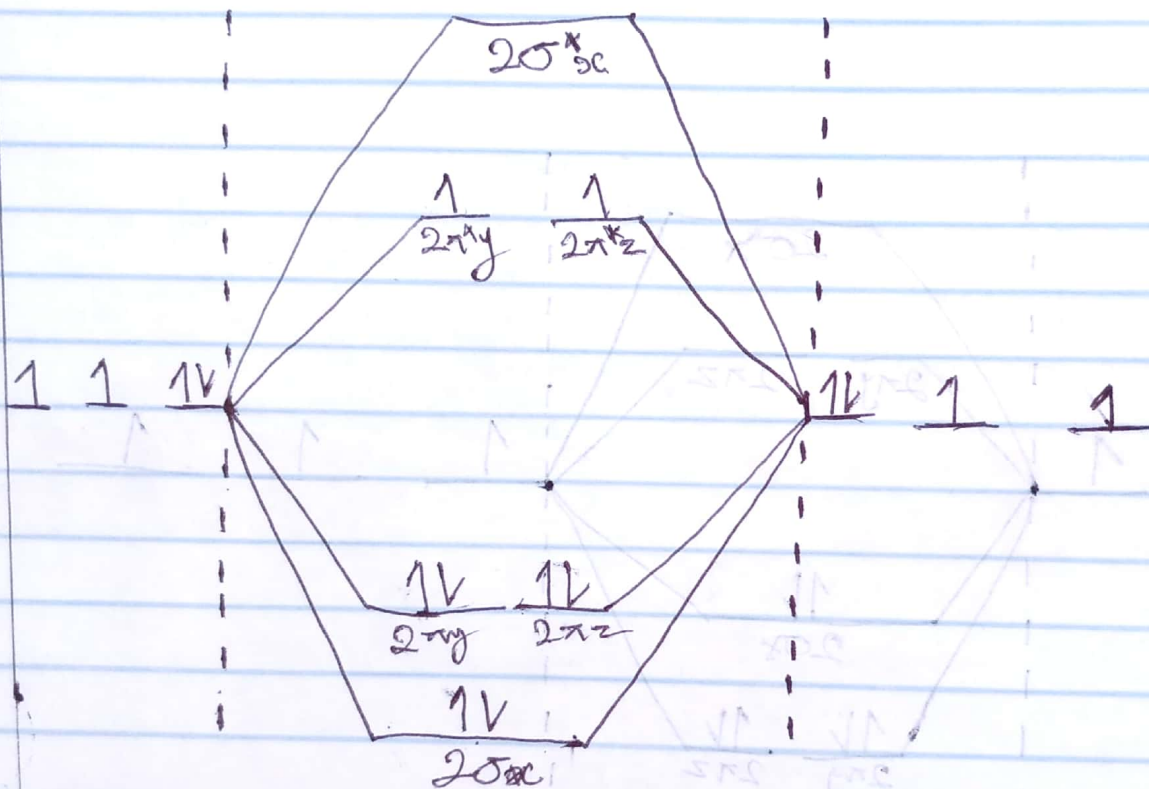 2σ*x
1 1
2π*y 2π*z
1 1 1V 1V 1 1
1V 1V
2πy 2πz
1V
2σx